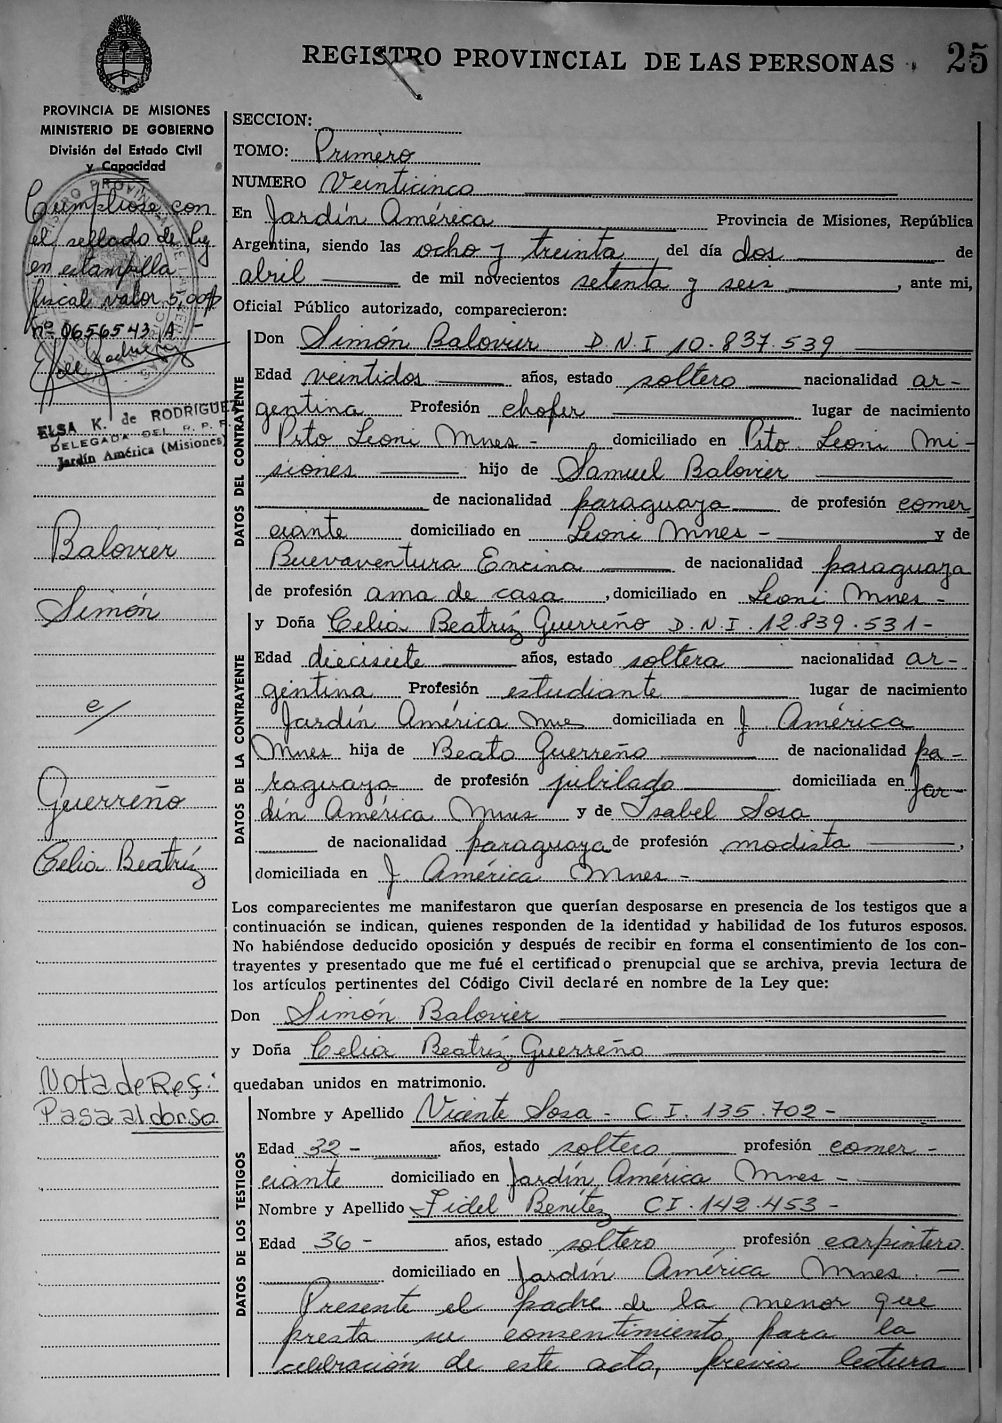 REGISTRO PROVINCIAL DE LAS PERSONAS 25
PROVINCIA DE MISIONES
MINISTERIO DE GOBIERNO
División del Estado Civil
y Capacidad
Cumpliose con
el sellado de ley
en estampilla
fiscal valor 5,00
nº 0656543 A -
ELSA K. de RODRIGUEZ
DELEGADA DEL R. P. P.
Jardín América (Misiones)
Balovier
Simón
e/
Guerreño
Celia Beatríz
Nota de Ref:
Pasa al dorso
SECCION:
TOMO: Primero
NUMERO Veinticinco
En Jardín América Provincia de Misiones, República
Argentina, siendo las ocho y treinta del día dos de
abril de mil novecientos setenta y seis, ante mi,
Oficial Público autorizado, comparecieron:
DATOS DEL CONTRAYENTE
Don Simón Balovier D.N.I 10.837.539
Edad veintidos años, estado soltero nacionalidad ar-
gentina Profesión chofer lugar de nacimiento
Pto Leoni Mnes - domiciliado en Pto. Leoni Mi-
siones hijo de Samuel Balovier
de nacionalidad paraguaya de profesión comer
ciante domiciliado en Leoni Mnes - y de
Buevaventura Encina de nacionalidad paraguaya
de profesión ama de casa, domiciliado en Leoni Mnes -
DATOS DE LA CONTRAYENTE
y Doña Celia Beatríz Guerreño D.N.I. 12.839.531-
Edad diecisiete años, estado soltera nacionalidad ar-
gentina Profesión estudiante lugar de nacimiento
Jardín América Mnes domiciliada en J. América
Mnes hija de Beato Guerreño de nacionalidad pa-
raguaya de profesión jubilado domiciliada en Jar-
dín América Mnes y de Isabel Sosa
de nacionalidad paraguaya de profesión modista,
domiciliada en J. América Mnes -
Los comparecientes me manifestaron que querían desposarse en presencia de los testigos que a
continuación se indican, quienes responden de la identidad y habilidad de los futuros esposos.
No habiéndose deducido oposición y después de recibir en forma el consentimiento de los con-
trayentes y presentado que me fué el certificado prenupcial que se archiva, previa lectura de
los artículos pertinentes del Código Civil declaré en nombre de la Ley que:
Don Simón Balovier
y Doña Celia Beatríz Guerreño
quedaban unidos en matrimonio.
DATOS DE LOS TESTIGOS
Nombre y Apellido Vicente Sosa - C.I. 135.702 -
Edad 32 - años, estado soltero profesión comer -
ciante domiciliado en Jardín América Mnes -
Nombre y Apellido Fidel Benítez CI. 142.453 -
Edad 36 - años, estado soltero profesión carpintero
domiciliado en Jardín América Mnes. -
Presente el padre de la menor que
presta su consentimiento para la
celebración de este acto, previa lectura